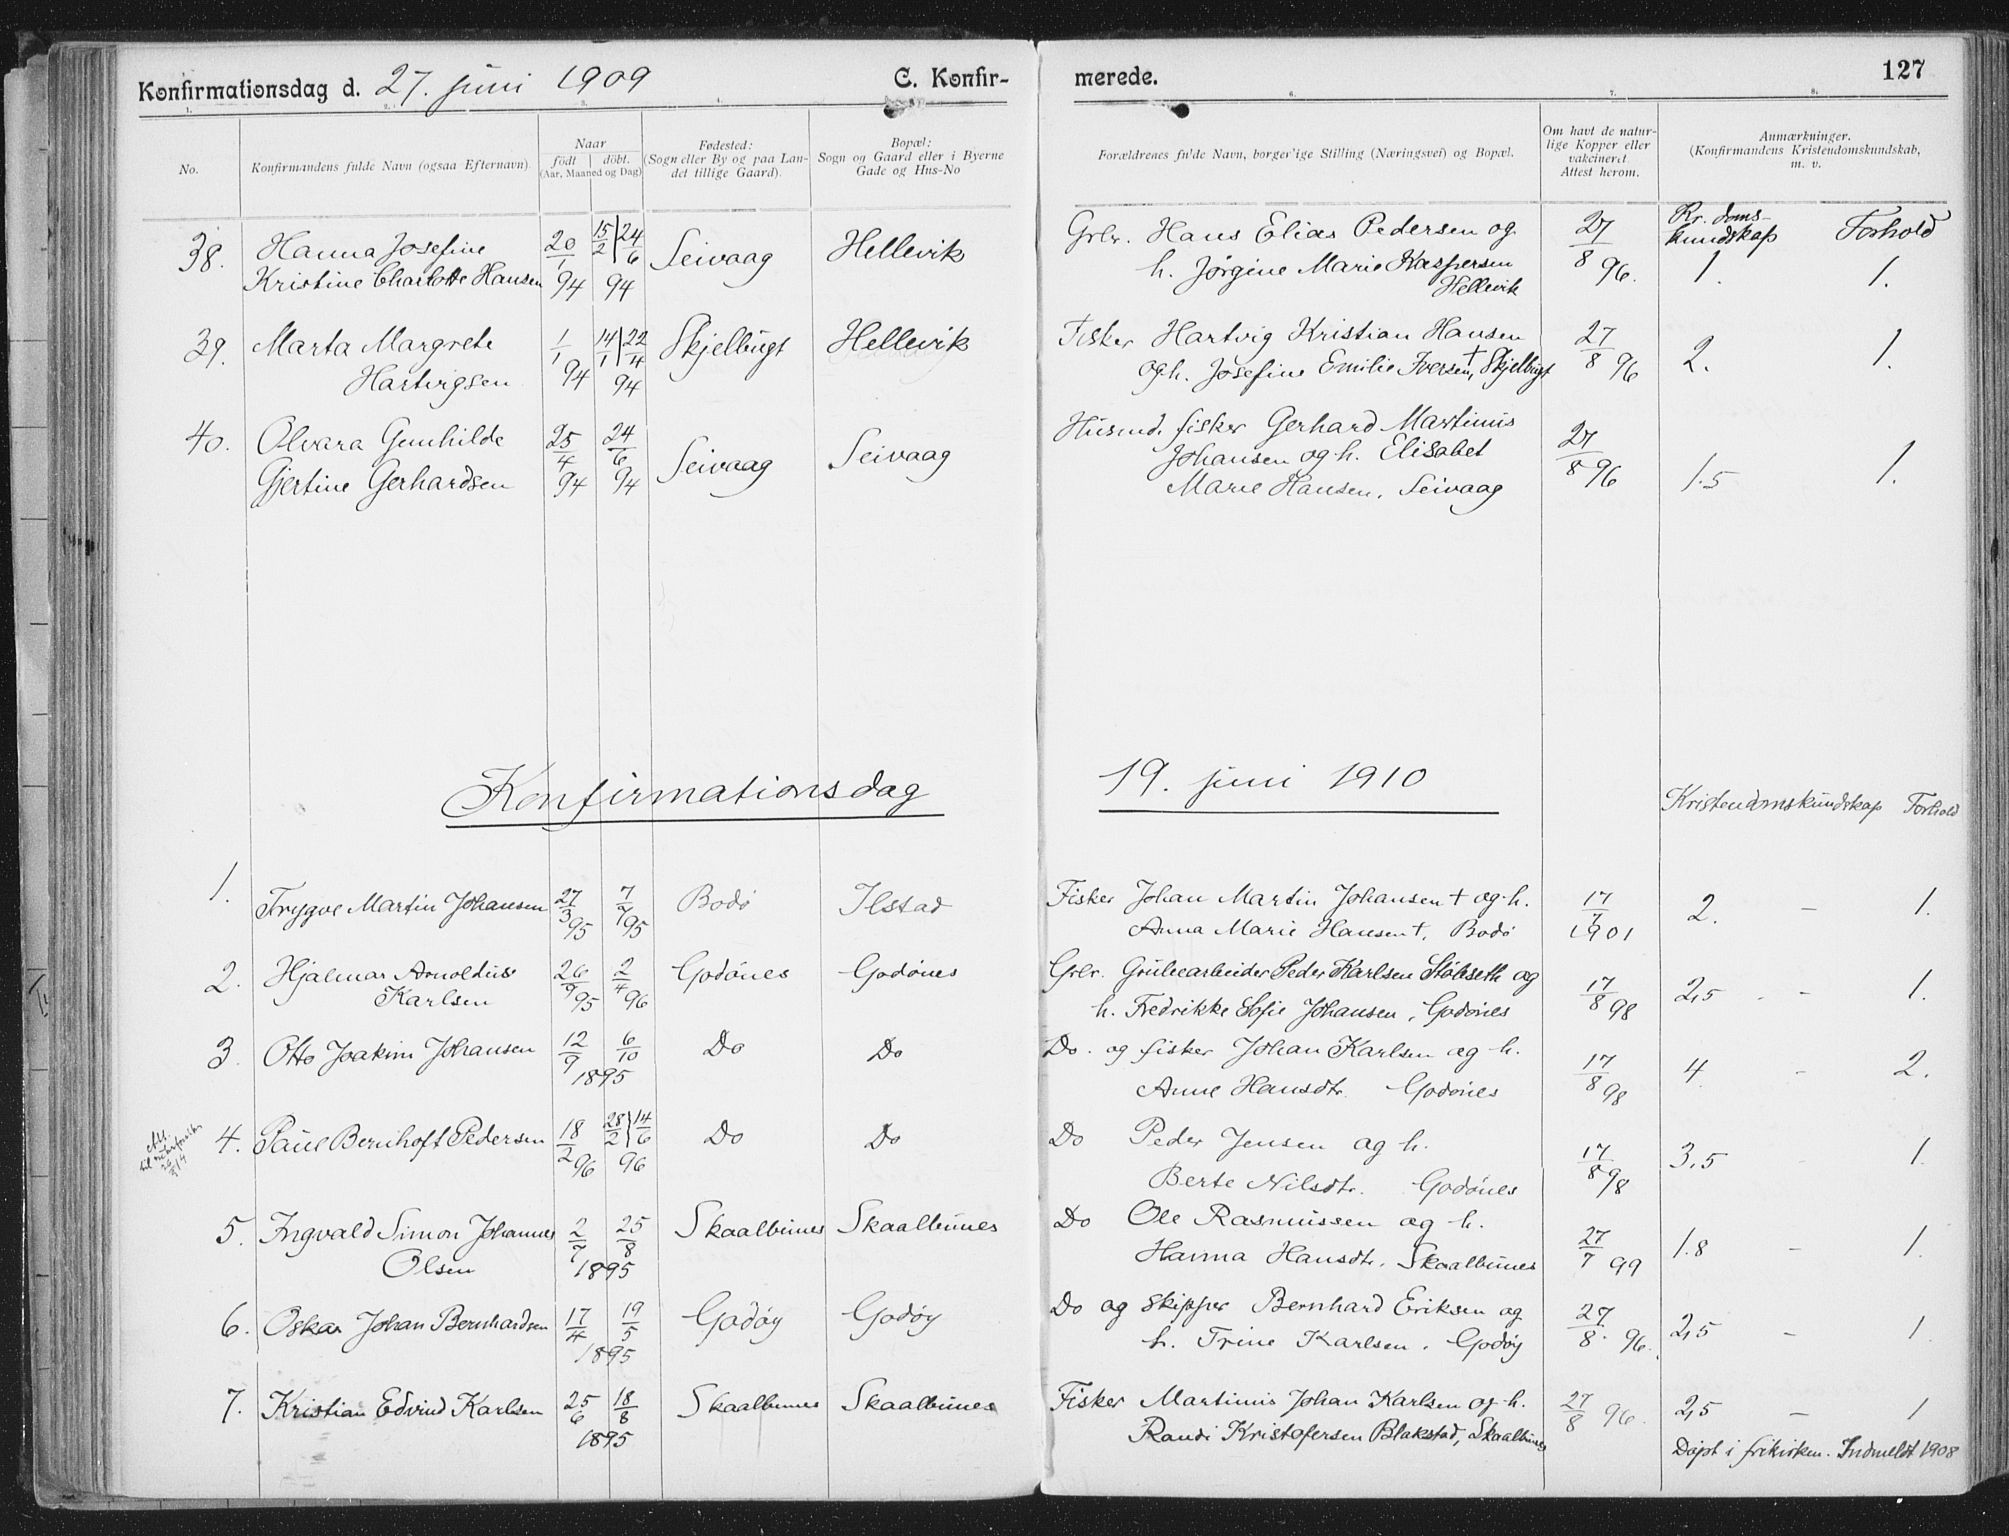 Konfirmationsdag d. 27. juni 1909
C. Konfir-
merede.
127
1. 2. 3. 4. 6. 7. 8.
No.
Konfirmandens fulde Navn (ogsaa Efternavn).
Naar
født | döbt.
(Aar, Maaned og Dag)
Fødested:
(Sogn eller By og paa Lan-
det tillige Gaard).
Bopæl:
Sogn og Gaard eller i Byerne
Gade og Hus-No
Forældrenes fulde Navn, borgerlige Stilling (Næringsvei) og Bopæl.
Om havt de natur-
lige Kopper eller
vakcineret
Attest herom.
Anmærkninger.
(Konfirmandens Kristendomskundskab,
m. v.
Kr. doms-
kundskap Forhold
38. Hanna Josefine 20/1 15/2 | 24/6 Seivaag Hellevik Grbr. Hans Elias Pedersen og 27/8 96.
Kristine Charlotte Hansen 94 94 h. Jørgine Marie Kaspersen 1. 1.
Hellevik
39. Marta Margrete 1/1 14/1 | 22/4 Skjelbugt Hellevik Fisker Hartvig Kristian Hansen 27/8 96 2. 1.
Hartvigsen 94 94 og h. Josefine Emilie Iversen †, Skjelbugt
40. Alvara Gunhilde 25/4 24/6 Seivaag Seivaag Husmd. fisker Gerhard Martinus 27/8 96
Gjertine Gerhardsen 94 94 Johansen og h. Elisabet 1.5 1.
Marie Hansen, Seivaag
Konfirmationsdag 19. juni 1910
Kristendomskundskap Forhold
1. Trygve Martin Johansen 27/3 95 7/7 95 Bodø Ilstad Fisker Johan Martin Johansen † og h. 17/7 1901 2. - 1.
Anna Marie Hansen †, Bodø
2. Hjalmar Arnoldus 26/9 95 2/4 96 Godønes Godønes Grbr. Grubearbeider Peder Karlsen Støbseth og 17/8 98 2,5 - 1.
Karlsen h. Fredrikke Sofie Johansen, Godønes
3. Otto Joakim Johansen 12/9 6/10 Do Do Do. og fisker Johan Karlsen og h. 17/8 98 4 - 2.
1895 Anne Hansdtr. Godønes
4. Paul Bernhoft Pedersen 18/2 96 28/2 } 14/6 96 Do Do Do Peder Jensen og h. 17/8 98 3,5 - 1.
Berte Nilsdtr. Godønes
5. Ingvald Simon Johannes 2/7 25/8 Skaalbunes Skaalbunes Do Ole Rasmussen og h. 27/7 99 1.8 - 1.
Olsen 1895 Hanna Hansdtr. Skaalbunes
6. Oskar Johan Bernhardsen 17/4 19/5 Godøy Godøy Do og skipper Bernhard Eriksen og 27/8. 96. 2,5 - 1.
1895 h. Trine Karlsen. Godøy
7. Kristian Edvind Karlsen 25/6 18/8 Skaalbunes Skaalbunes Fisker Martinus Johan Karlsen og h. 27/8 96. 2,5 - 1
1895 Randi Kristofersen Blakstad, Skaalbunes
Døpt i frikirken. Indmeldt 1908